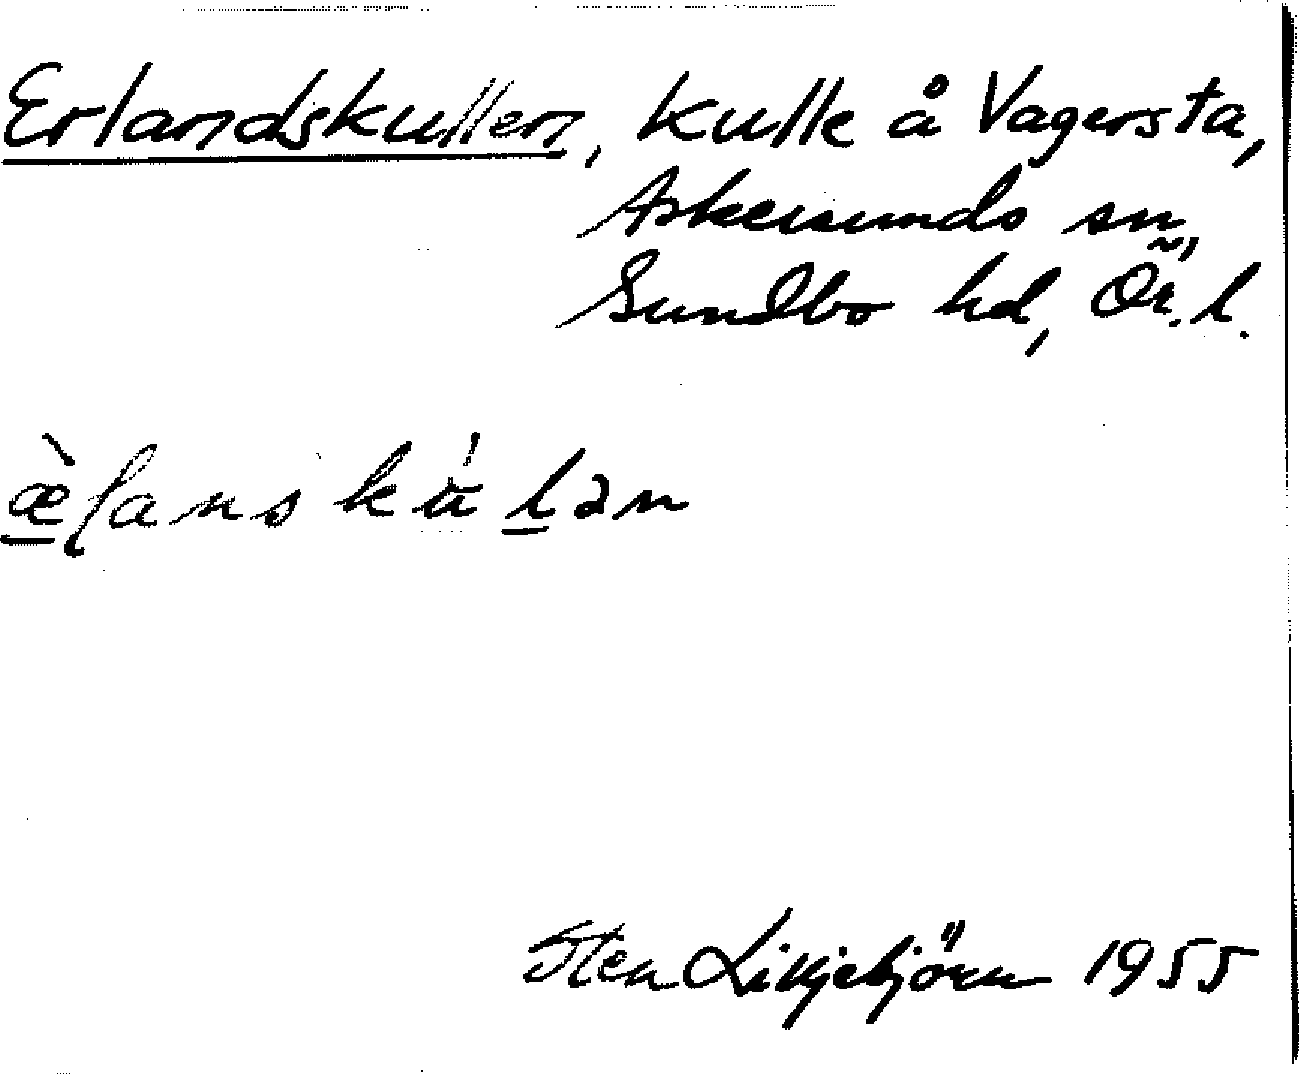 Erlandskullen, kulle å Vagersta,
Askersunds sn,
Sundbo hd, Ör. l.
æ̀lanskúlən
Sten Liljebjörn 1955